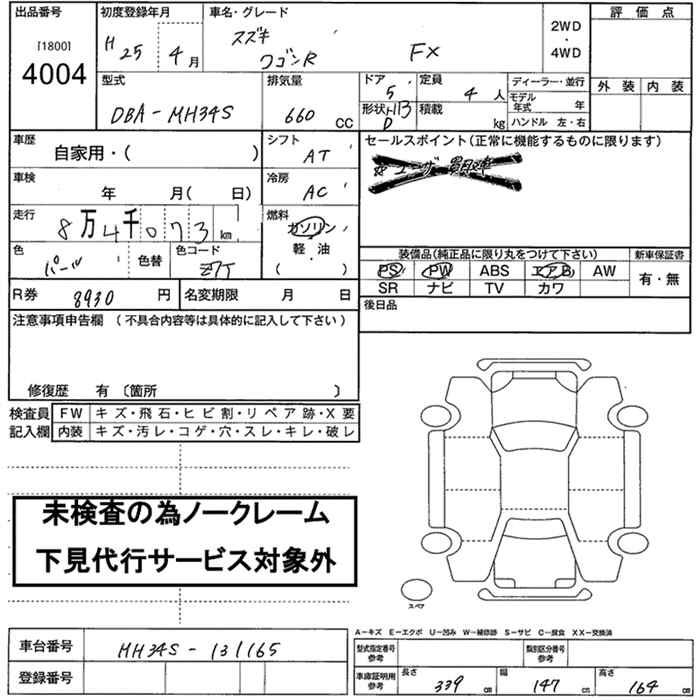 出品番号
[1800]
4004
初度登録年月
H 25 年 4 月
車名・グレード
スズキ
ワゴンR FX
2WD
・
4WD
評価点
外装 内装
型式
DBA-MH34S
排気量
660 CC
ドア
5
形状
HB
D
定員
4 人
積載
kg
ディーラー・並行
モデル年式 年
ハンドル 左・右
車歴
自家用・( )
シフト
AT
車検
年 月( 日)
冷房
AC
走行
8万4千073 km
燃料
ガソリン
・
軽・油
( )
色
パール
色替
色コード
Z7T
R券 8930 円
名変期限 月 日
セールスポイント(正常に機能するものに限ります)
ユーザー買取車
装備品(純正品に限り丸をつけて下さい)
PS PW ABS エアB AW
SR ナビ TV カワ
新車保証書
有・無
後日品
注意事項申告欄 (不具合内容等は具体的に記入して下さい)
修復歴 有 〔箇所 〕
検査員記入欄
FW キズ・飛石・ヒビ割・リペア跡・X要
内装 キズ・汚レ・コゲ・穴・スレ・キレ・破レ
未検査の為ノークレーム
下見代行サービス対象外
スペア
A-キズ E-エクボ U-凹み W-補修跡 S-サビ C-腐食 XX-交換済
車台番号 MH34S-131165
登録番号
型式指定番号
参考
類別区分番号
参考
車庫証明用
参考
長さ 339 cm
幅 147 cm
高さ 164 cm